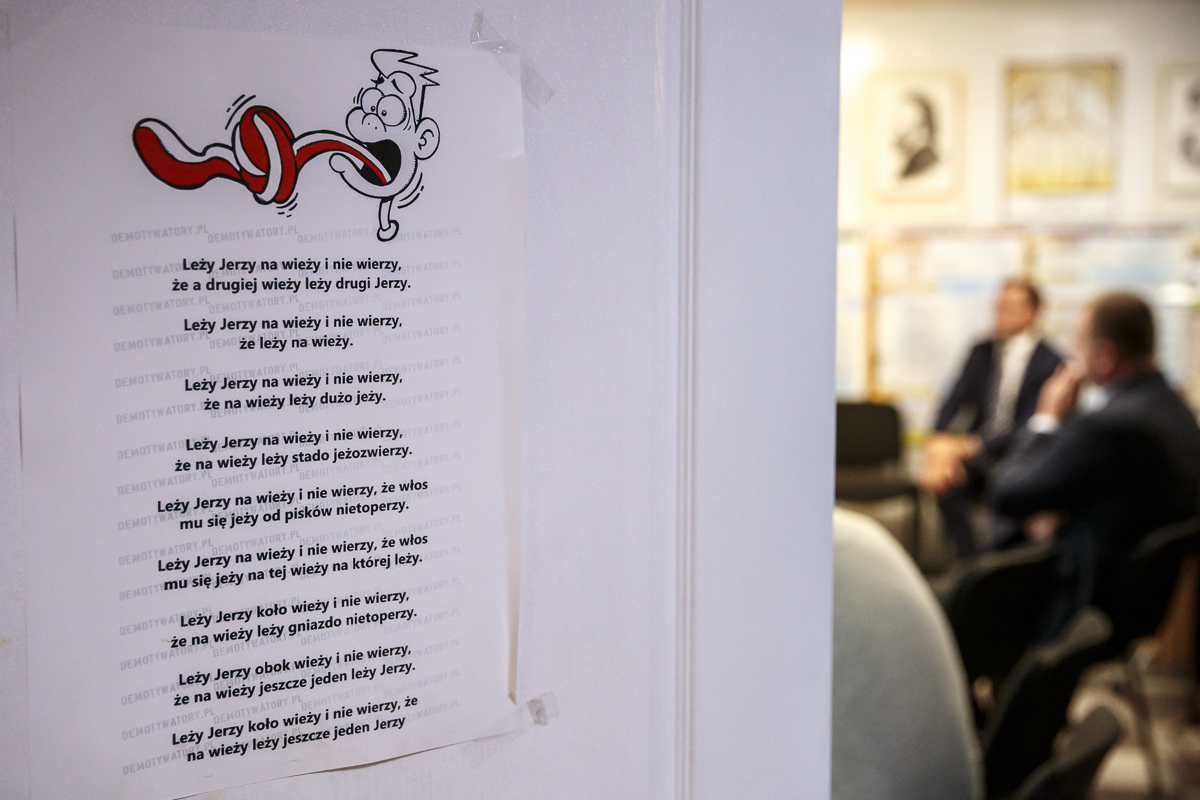 DEMOTYWATORY.PL
Leży Jerzy na wieży i nie wierzy,
że a drugiej wieży leży drugi Jerzy.
Leży Jerzy na wieży i nie wierzy,
że leży na wieży.
Leży Jerzy na wieży i nie wierzy,
że na wieży leży dużo jeży.
Leży Jerzy na wieży i nie wierzy,
że na wieży leży stado jeżozwierzy.
Leży Jerzy na wieży i nie wierzy, że włos
mu się jeży od pisków nietoperzy.
Leży Jerzy na wieży i nie wierzy, że włos
mu się jeży na tej wieży na której leży.
Leży Jerzy koło wieży i nie wierzy,
że na wieży leży gniazdo nietoperzy.
Leży Jerzy obok wieży i nie wierzy,
że na wieży jeszcze jeden leży Jerzy.
Leży Jerzy koło wieży i nie wierzy, że
na wieży leży jeszcze jeden Jerzy